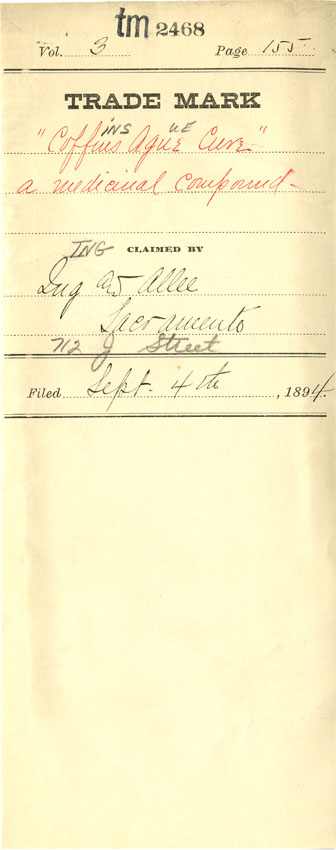 tm 2468
Vol. 3 Page 155
TRADE MARK
INS UE
"Coffins Ague Cure"
a medicinal compound-
ING CLAIMED BY
Ing & Allee
Sacramento
712 J Street
Filed Sept. 4th, 1894.